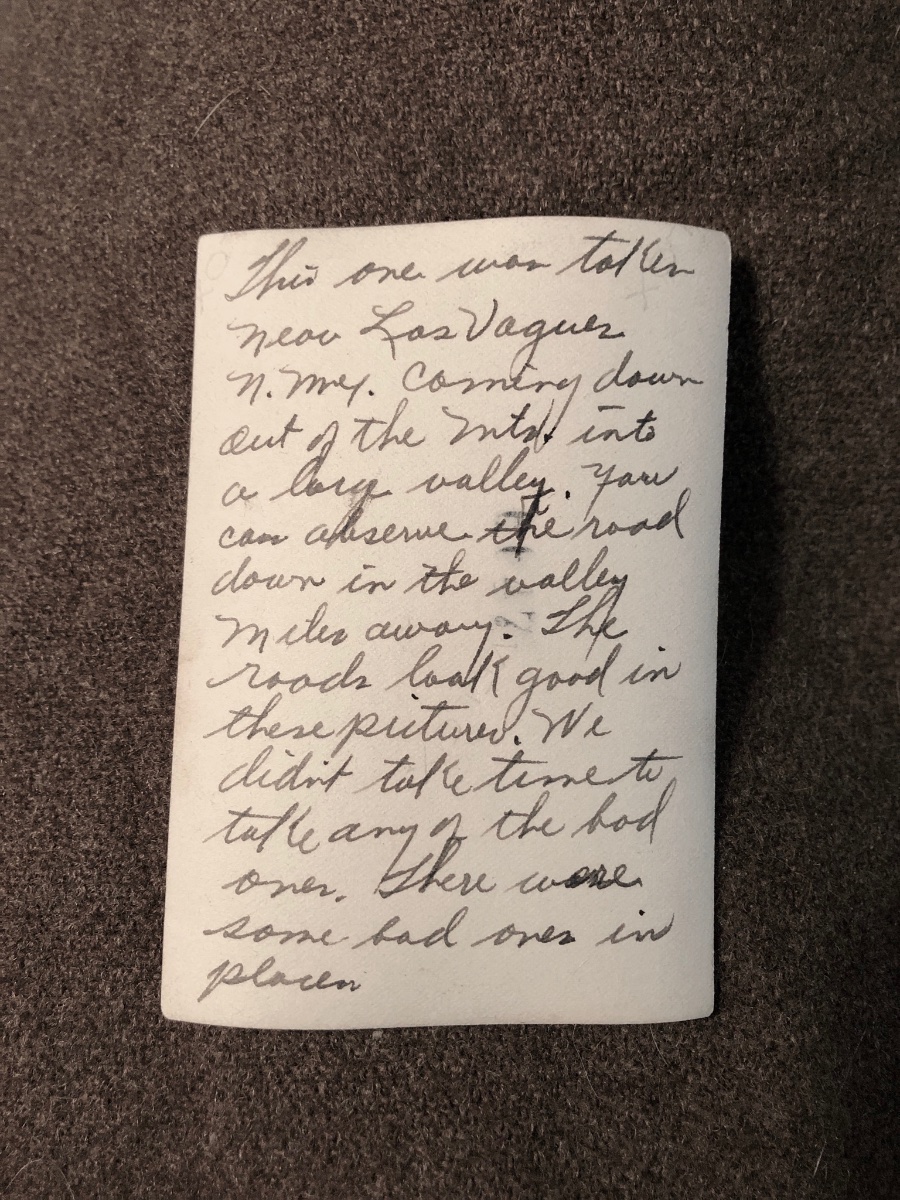 This one was taken
near Las Vagues
N. Mex. Coming down
out of the Mts. into
a large valley. You
can observe the road
down in the valley
Miles away. The
roads look good in
these pictures. We
didn't take time to
take any of the bad
ones. There were
some bad ones in
places